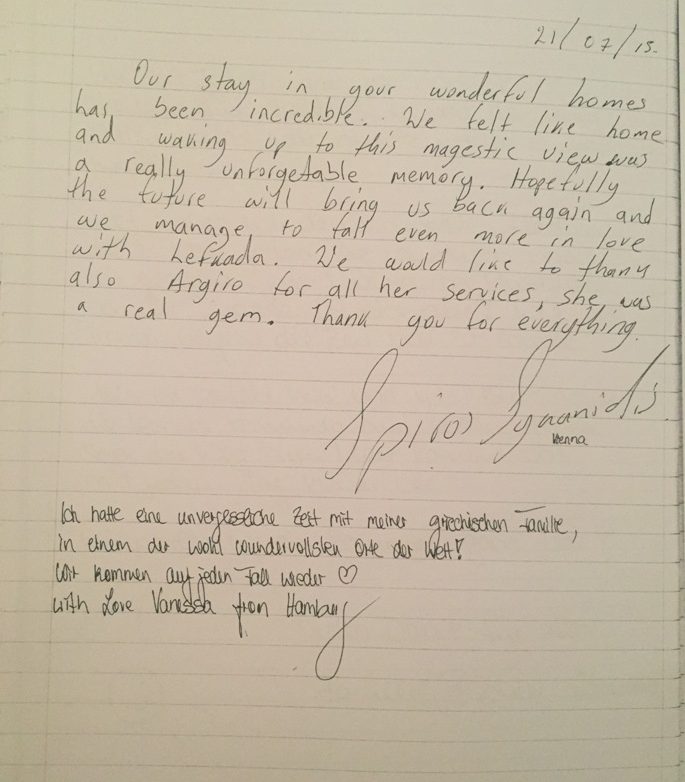 21/07/15.
Our stay in your wonderful homes
has been incredible. We felt like home
and waking up to this magestic view was
a really unforgetable memory. Hopefully
the future will bring us back again and
we manage to fall even more in love
with Lefkada. We would like to thank
also Argiro for all her services, she was
a real gem. Thank you for everything.
Spiros
Vienna
Ich hatte eine unvergessliche Zeit mit meiner griechischen Familie,
in einem der wohl wundervollsten Orte der Welt!
Wir kommen auf jeden Fall wieder ♡
with Love Vanessa from Hamburg